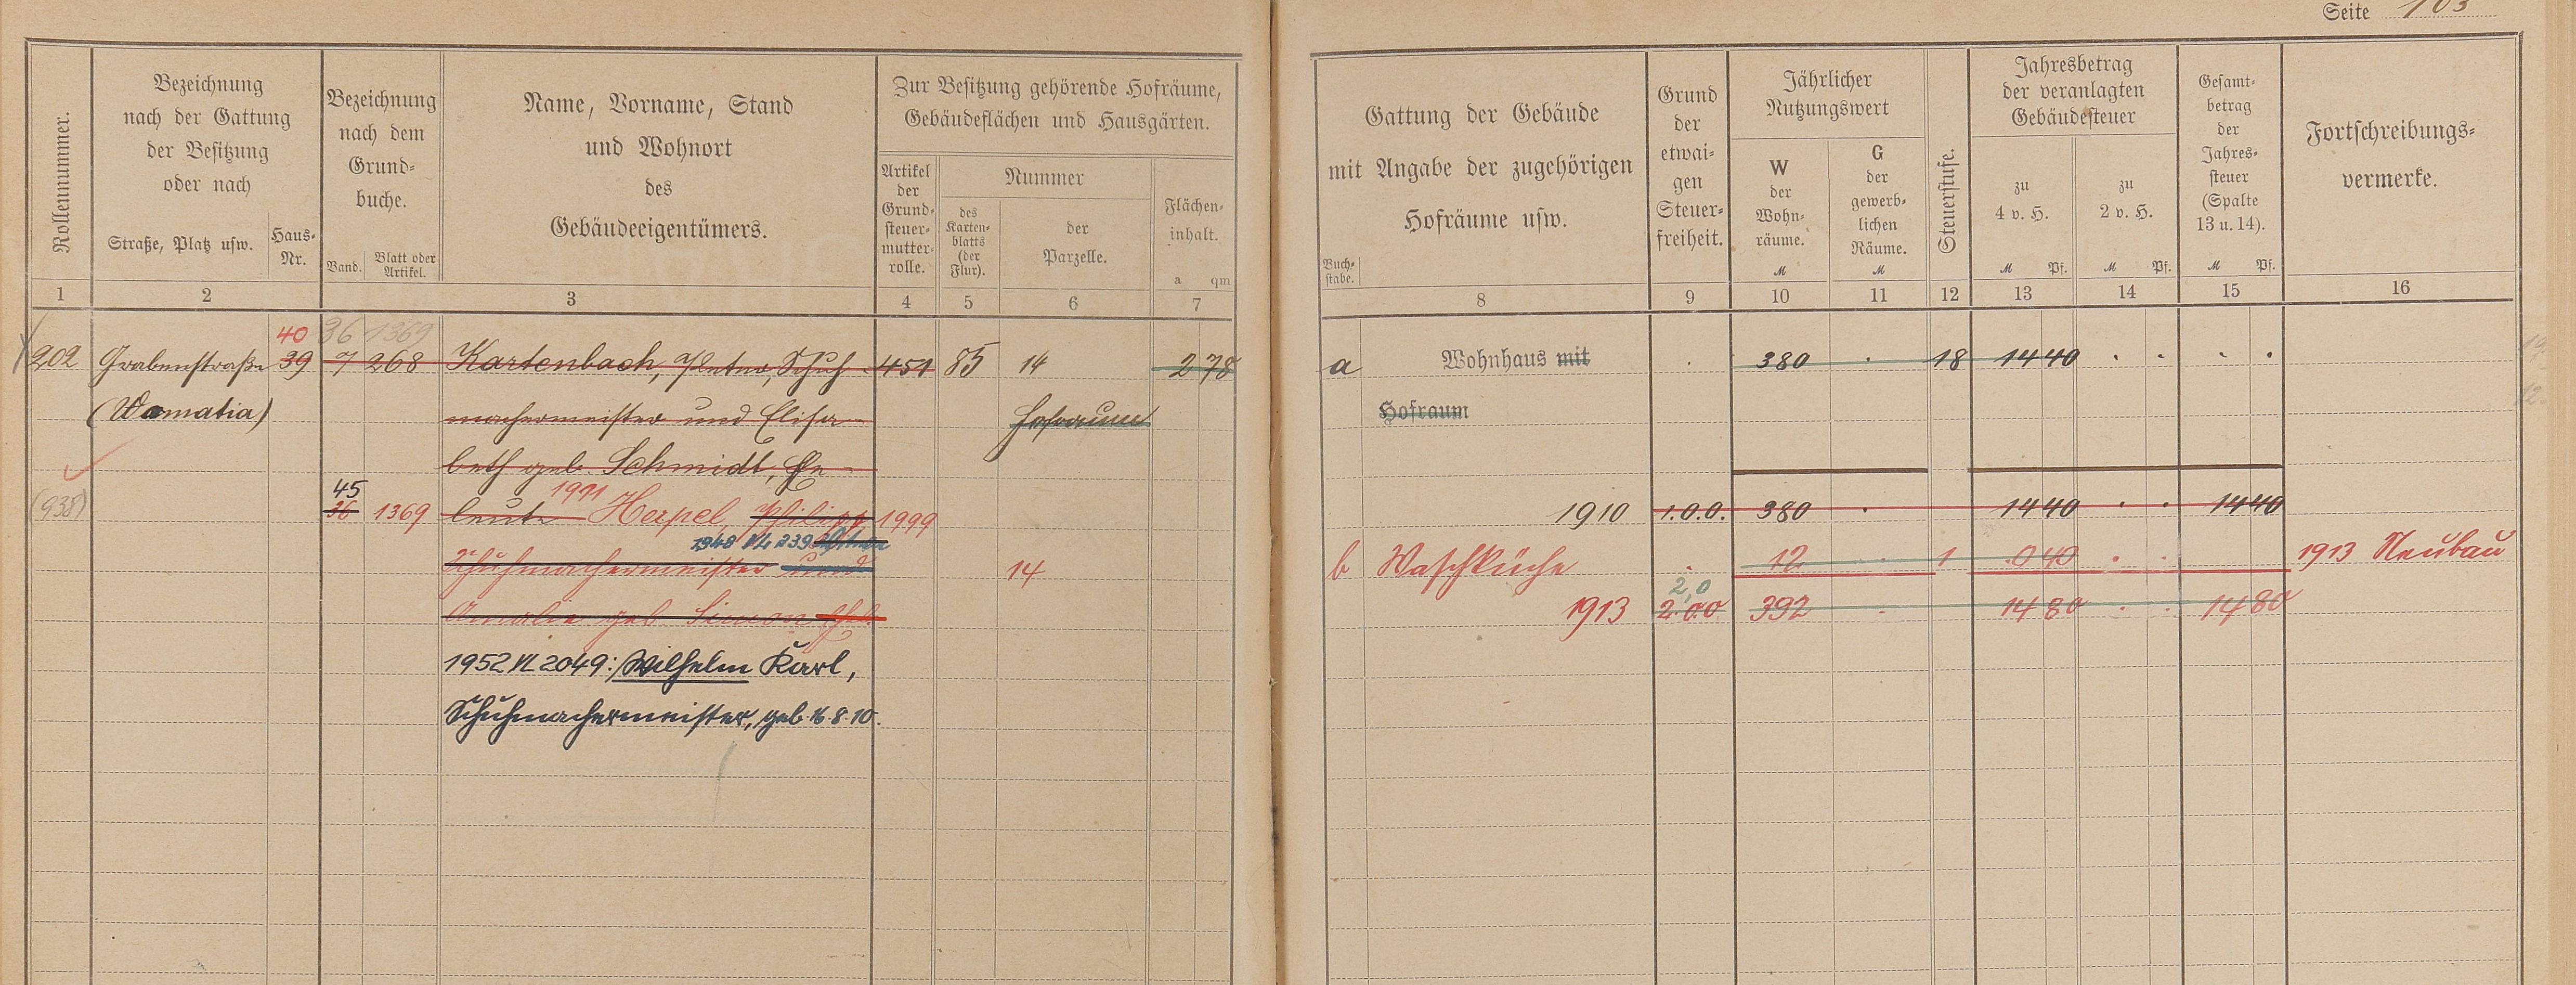 Seite 103
Rollennummer.
Bezeichnung
nach der Gattung
der Besitzung
oder nach
Straße, Platz usw.
Haus-
Nr.
Bezeichnung
nach dem
Grund-
buche.
Band.
Blatt oder
Artikel.
Name, Vorname, Stand
und Wohnort
des
Gebäudeeigentümers.
Zur Besitzung gehörende Hofräume,
Gebäudeflächen und Hausgärten.
Artikel
der
Grund-
steuer-
mutter-
rolle.
Nummer
des
Karten-
blatts
(der
Flur).
der
Parzelle.
Flächen-
inhalt.
a qm
1 2 3 4 5 6 7
Gattung der Gebäude
mit Angabe der zugehörigen
Hofräume usw.
Buch-
stabe.
Grund
der
etwai-
gen
Steuer-
freiheit.
Jährlicher
Nutzungswert
W
der
Wohn-
räume.
M
G
der
gewerb-
lichen
Räume.
M
Steuerstufe.
Jahresbetrag
der veranlagten
Gebäudesteuer
zu
4 v. H.
M Pf.
zu
2 v. H.
M Pf.
Gesamt-
betrag
der
Jahres-
steuer
(Spalte
13 u. 14).
M Pf.
Fortschreibungs-
vermerke.
8 9 10 11 12 13 14 15 16
40 36 1369
202 Grabenstraße 39 7 268 Kartenbach, Peter, Schuh- 451 85 14 2 78
(Womatia) machermeister und Elisa- Hofraum
beth geb. Schmidt, Ehe-
45 1911
(938) 36 1369 leute Herpel, Philipp 1999
1948 VL 239 Witwer
Schuhmachermeister und 14
Amalie geb. Simon Ehel.
1952 VL 2049: Wilhelm Karl,
Schuhmachermeister, geb. 16.8.10.
a Wohnhaus mit 380 . 18 14 40 . . . .
Hofraum
1910 1.0.0. 380 . 14 40 . . 14 40
b Waschküche . 12 . 1 . 0 40 . . 1913 Neubau
2,0
1913 2.0.0 392 . 14 80 . . 14 80